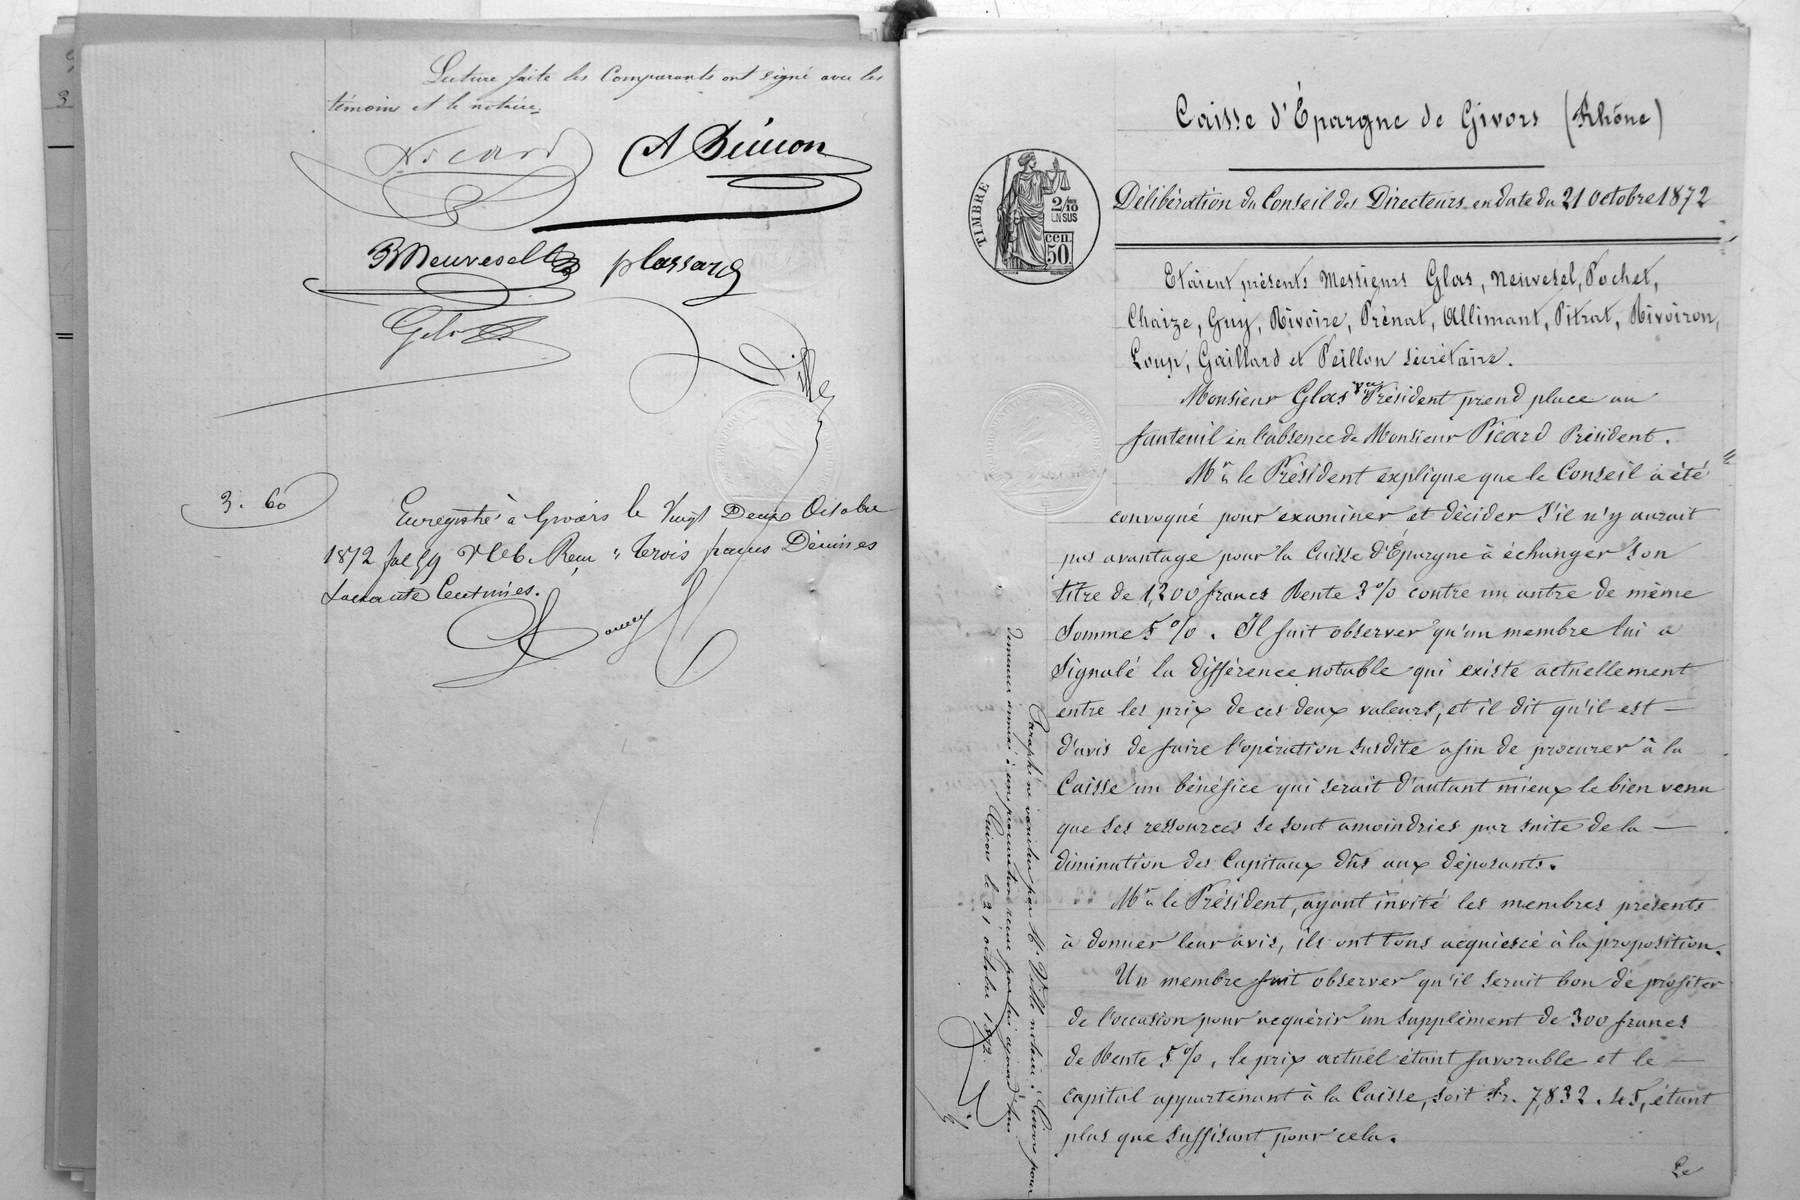 Lecture faite les Comparants ont signé avec les
témoins et le notaire,
Picard
A Dénion
B Neuvesel
plassard
Ville
3. 60
Enregistré à Givors le Vingt Deux Octobre
1872 fol 59 Reçu trois francs Décimes
soixante Centimes.
Caisse d'Épargne de Givors (Rhône)
TIMBRE
2/10
EN SUS
cen.
50
Délibération du Conseil des Directeurs en date du 21 octobre 1872
Etaient présents Messieurs Glas, Neuvesel, Pochet,
Chaize, Guy, Rivoire, Prénat, Allimant, Pitrat, Rivoiron,
Loup, Gaillard et Peillon secrétaire.
Monsieur Glas vice Président prend place au
fauteuil en l'absence de Monsieur Picard Président.
Mr le Président explique que le Conseil a été
convoqué pour examiner et décider s'il n'y aurait
pas avantage pour la Caisse d'Épargne à échanger son
titre de 1,200 francs Rente 3% contre un autre de même
somme 5%. Il fait observer qu'un membre lui a
signalé la différence notable qui existe actuellement
entre les prix de ces deux valeurs, et il dit qu'il est —
d'avis de faire l'opération susdite afin de procurer à la
Caisse un bénéfice qui serait d'autant mieux le bien venu
que ses ressources se sont amoindries par suite de la —
diminution des Capitaux dûs aux déposants.
Mr le Président, ayant invité les membres présents
à donner leur avis, ils ont tous acquiescé à la proposition.
Un membre fait observer qu'il serait bon de profiter
de l'occasion pour acquérir un supplément de 300 francs
de Rente 5%, le prix actuel étant favorable et le —
capital appartenant à la Caisse, soit Fr. 7,832.45, étant
plus que suffisant pour cela.
Le
Paraphé ne varietur par Me Ville notaire à Givors pour
demeurer annexé à une procuration reçue par lui aujourd'hui
Givors le 21 octobre 1872.